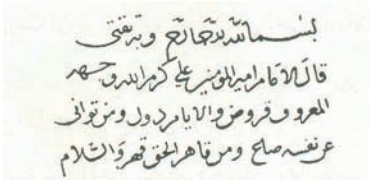 بسم الله الرحمن الرحيم وبه ثقتي
قال الامام امير المؤمنين علي كرم الله وجهه
المعروف قروض والايام دول ومن توانى
عن نفسه ضاع ومن قاهر الحق قهر والسلام